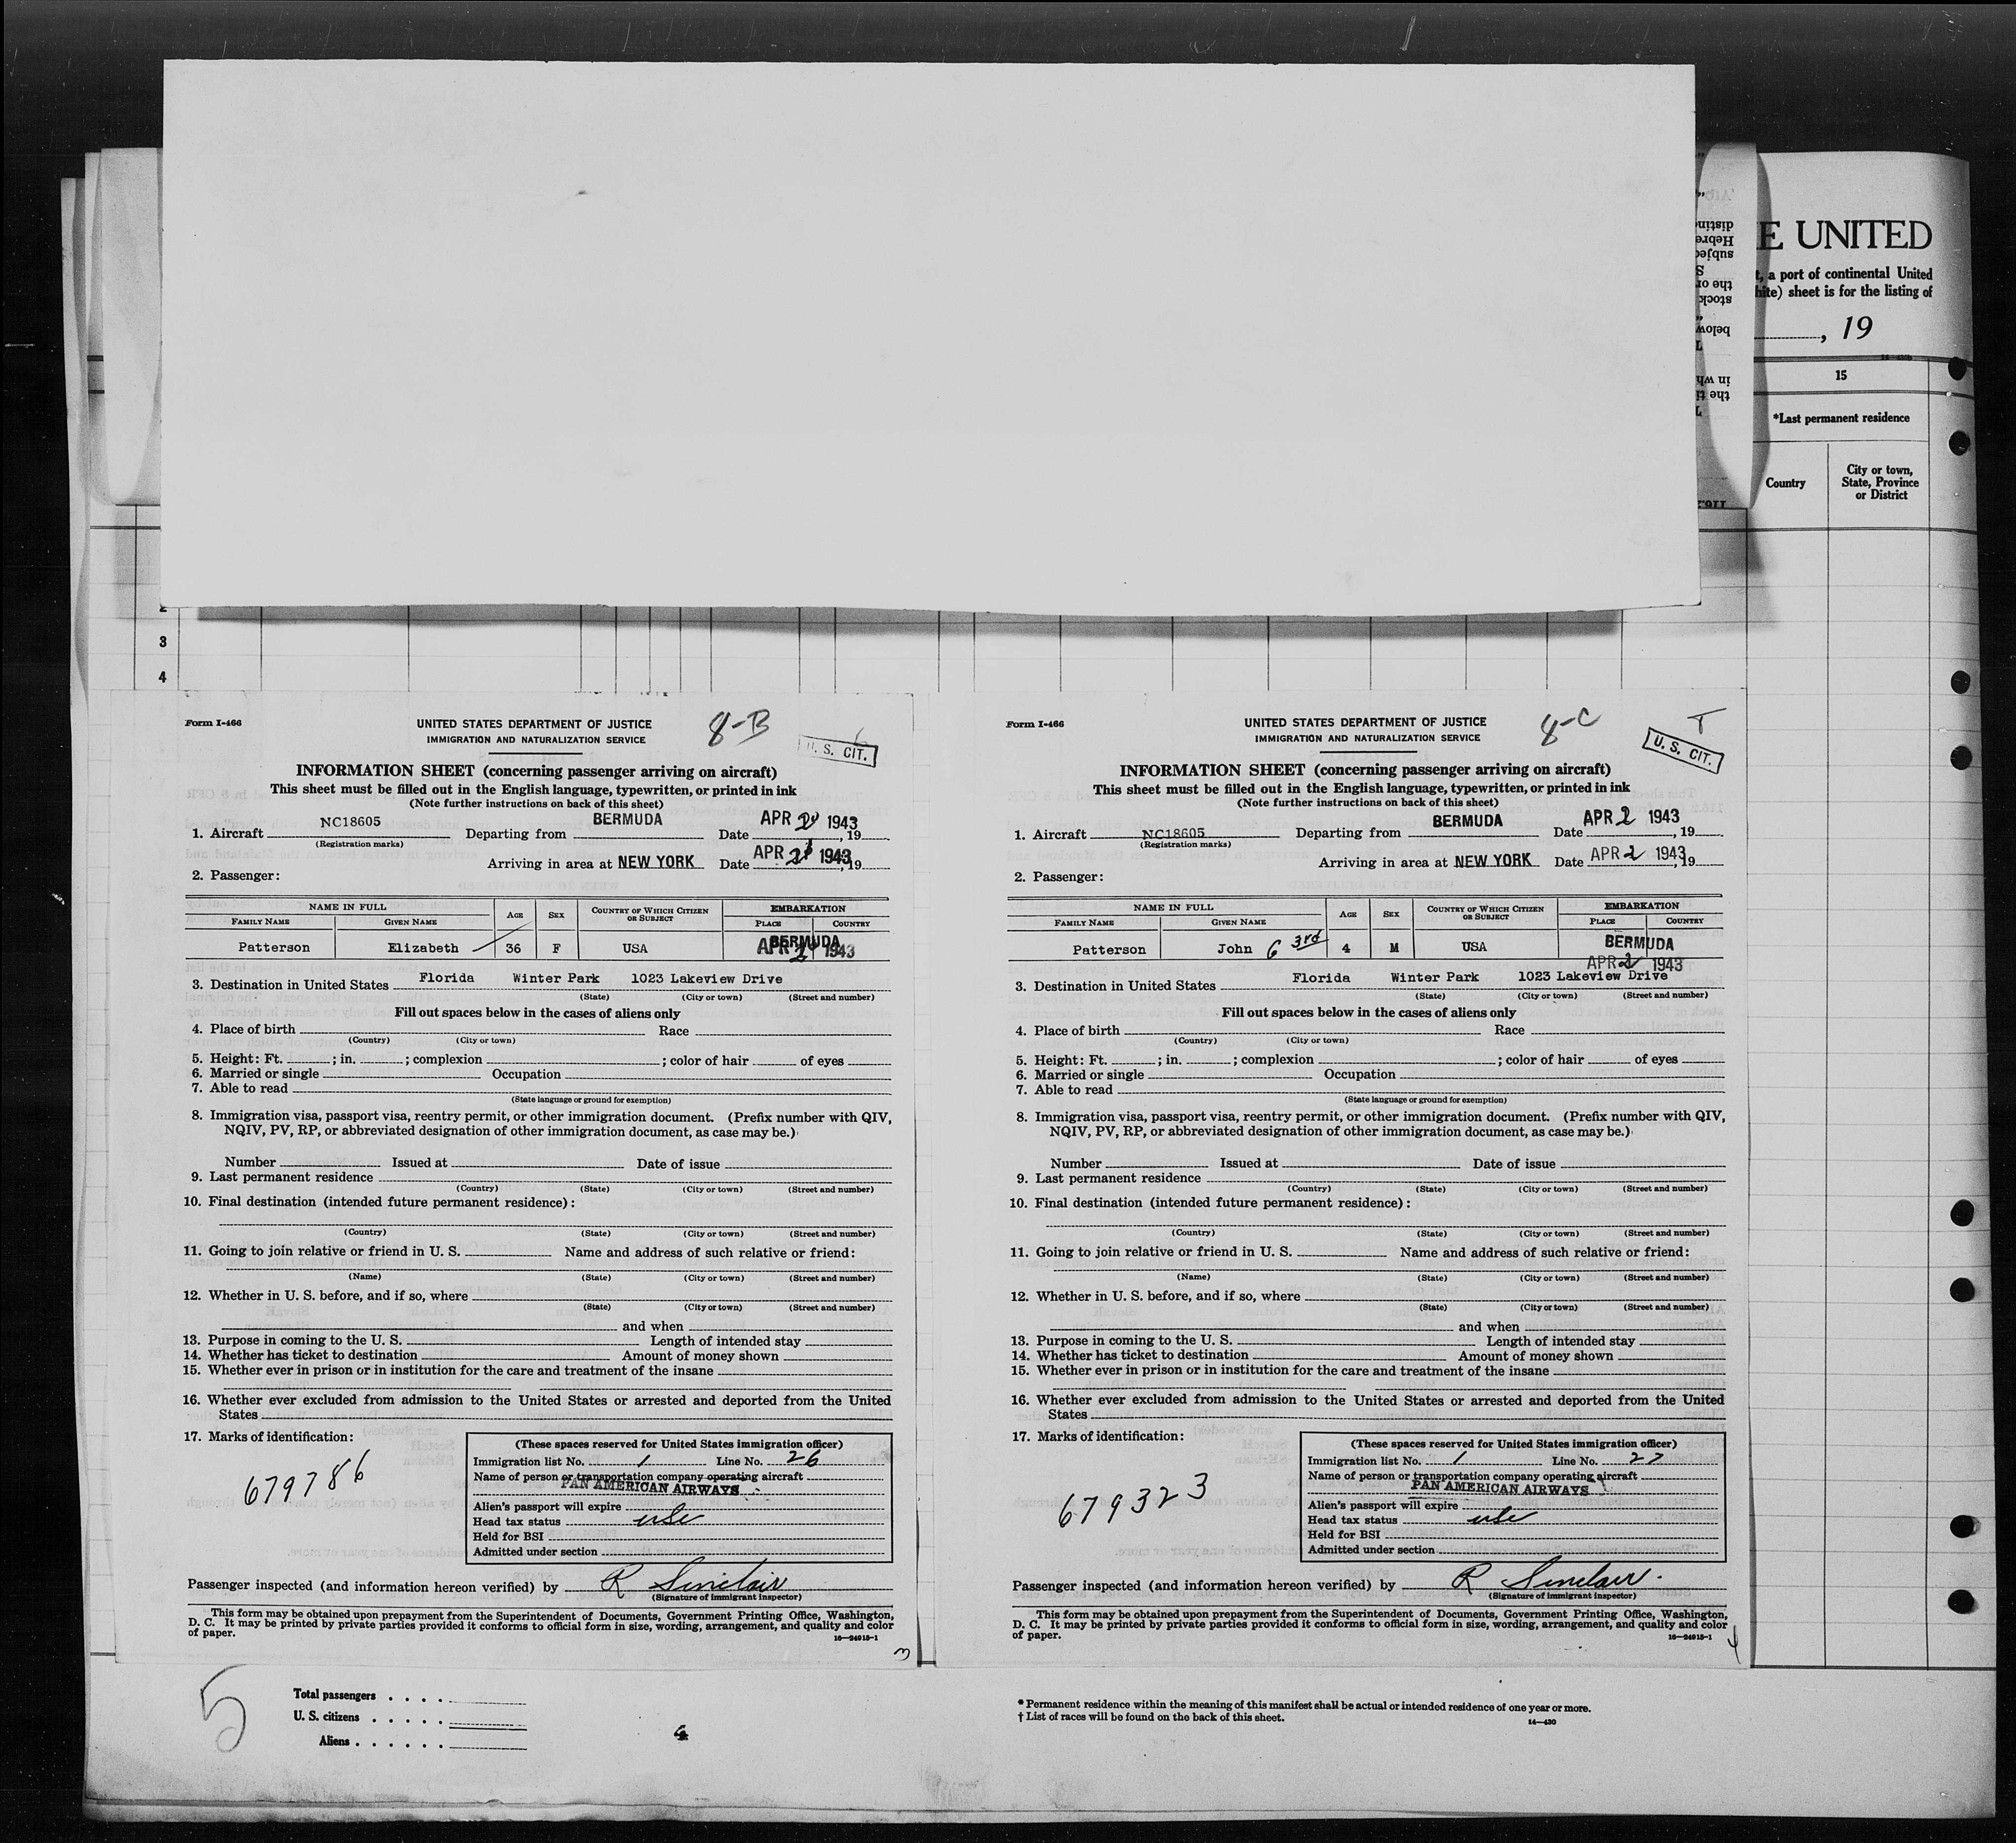 E UNITED
t, a port of continental United
hite) sheet is for the listing of
, 19
15
*Last permanent residence
Country
City or town, State, Province or District
distin
Hebre
subjec
S
the or
stock
below
in wh
the ti
3
4
Form I-466
UNITED STATES DEPARTMENT OF JUSTICE
IMMIGRATION AND NATURALIZATION SERVICE
8-B
U. S. CIT.
INFORMATION SHEET (concerning passenger arriving on aircraft)
This sheet must be filled out in the English language, typewritten, or printed in ink
(Note further instructions on back of this sheet)
1. Aircraft NC18605 Departing from BERMUDA Date APR 2 1943, 19
(Registration marks)
Arriving in area at NEW YORK Date APR 2 1943, 19
2. Passenger:
NAME IN FULL AGE SEX COUNTRY OF WHICH CITIZEN OR SUBJECT EMBARKATION
FAMILY NAME GIVEN NAME PLACE COUNTRY
Patterson Elizabeth 36 F USA BERMUDA
APR 2 1943
3. Destination in United States Florida Winter Park 1023 Lakeview Drive
(State) (City or town) (Street and number)
Fill out spaces below in the cases of aliens only
4. Place of birth Race
(Country) (City or town)
5. Height: Ft. ; in. ; complexion ; color of hair of eyes
6. Married or single Occupation
7. Able to read
(State language or ground for exemption)
8. Immigration visa, passport visa, reentry permit, or other immigration document. (Prefix number with QIV,
NQIV, PV, RP, or abbreviated designation of other immigration document, as case may be.)
Number Issued at Date of issue
9. Last permanent residence
(Country) (State) (City or town) (Street and number)
10. Final destination (intended future permanent residence):
(Country) (State) (City or town) (Street and number)
11. Going to join relative or friend in U. S. Name and address of such relative or friend:
(Name) (State) (City or town) (Street and number)
12. Whether in U. S. before, and if so, where
(State) (City or town) (Street and number)
and when
13. Purpose in coming to the U. S. Length of intended stay
14. Whether has ticket to destination Amount of money shown
15. Whether ever in prison or in institution for the care and treatment of the insane
16. Whether ever excluded from admission to the United States or arrested and deported from the United
States
17. Marks of identification:
679786
(These spaces reserved for United States immigration officer)
Immigration list No. 1 Line No. 26
Name of person or transportation company operating aircraft
PAN AMERICAN AIRWAYS
Alien's passport will expire
Head tax status usc
Held for BSI
Admitted under section
Passenger inspected (and information hereon verified) by R Sinclair
(Signature of immigrant inspector)
This form may be obtained upon prepayment from the Superintendent of Documents, Government Printing Office, Washington,
D. C. It may be printed by private parties provided it conforms to official form in size, wording, arrangement, and quality and color
of paper.
16—24915-1
3
Form I-466
UNITED STATES DEPARTMENT OF JUSTICE
IMMIGRATION AND NATURALIZATION SERVICE
8-C
T
U. S. CIT.
INFORMATION SHEET (concerning passenger arriving on aircraft)
This sheet must be filled out in the English language, typewritten, or printed in ink
(Note further instructions on back of this sheet)
1. Aircraft NC18605 Departing from BERMUDA Date APR 2 1943, 19
(Registration marks)
Arriving in area at NEW YORK Date APR 2 1943, 19
2. Passenger:
NAME IN FULL AGE SEX COUNTRY OF WHICH CITIZEN OR SUBJECT EMBARKATION
FAMILY NAME GIVEN NAME PLACE COUNTRY
Patterson John G 3rd 4 M USA BERMUDA
APR 2 1943
3. Destination in United States Florida Winter Park 1023 Lakeview Drive
(State) (City or town) (Street and number)
Fill out spaces below in the cases of aliens only
4. Place of birth Race
(Country) (City or town)
5. Height: Ft. ; in. ; complexion ; color of hair of eyes
6. Married or single Occupation
7. Able to read
(State language or ground for exemption)
8. Immigration visa, passport visa, reentry permit, or other immigration document. (Prefix number with QIV,
NQIV, PV, RP, or abbreviated designation of other immigration document, as case may be.)
Number Issued at Date of issue
9. Last permanent residence
(Country) (State) (City or town) (Street and number)
10. Final destination (intended future permanent residence):
(Country) (State) (City or town) (Street and number)
11. Going to join relative or friend in U. S. Name and address of such relative or friend:
(Name) (State) (City or town) (Street and number)
12. Whether in U. S. before, and if so, where
(State) (City or town) (Street and number)
and when
13. Purpose in coming to the U. S. Length of intended stay
14. Whether has ticket to destination Amount of money shown
15. Whether ever in prison or in institution for the care and treatment of the insane
16. Whether ever excluded from admission to the United States or arrested and deported from the United
States
17. Marks of identification:
679323
(These spaces reserved for United States immigration officer)
Immigration list No. 1 Line No. 27
Name of person or transportation company operating aircraft
PAN AMERICAN AIRWAYS
Alien's passport will expire
Head tax status usc
Held for BSI
Admitted under section
Passenger inspected (and information hereon verified) by R Sinclair.
(Signature of immigrant inspector)
This form may be obtained upon prepayment from the Superintendent of Documents, Government Printing Office, Washington,
D. C. It may be printed by private parties provided it conforms to official form in size, wording, arrangement, and quality and color
of paper.
16—24915-1
4
5
Total passengers . . . .
U. S. citizens . . . . .
Aliens . . . . . .
4
* Permanent residence within the meaning of this manifest shall be actual or intended residence of one year or more.
† List of races will be found on the back of this sheet.
14—430